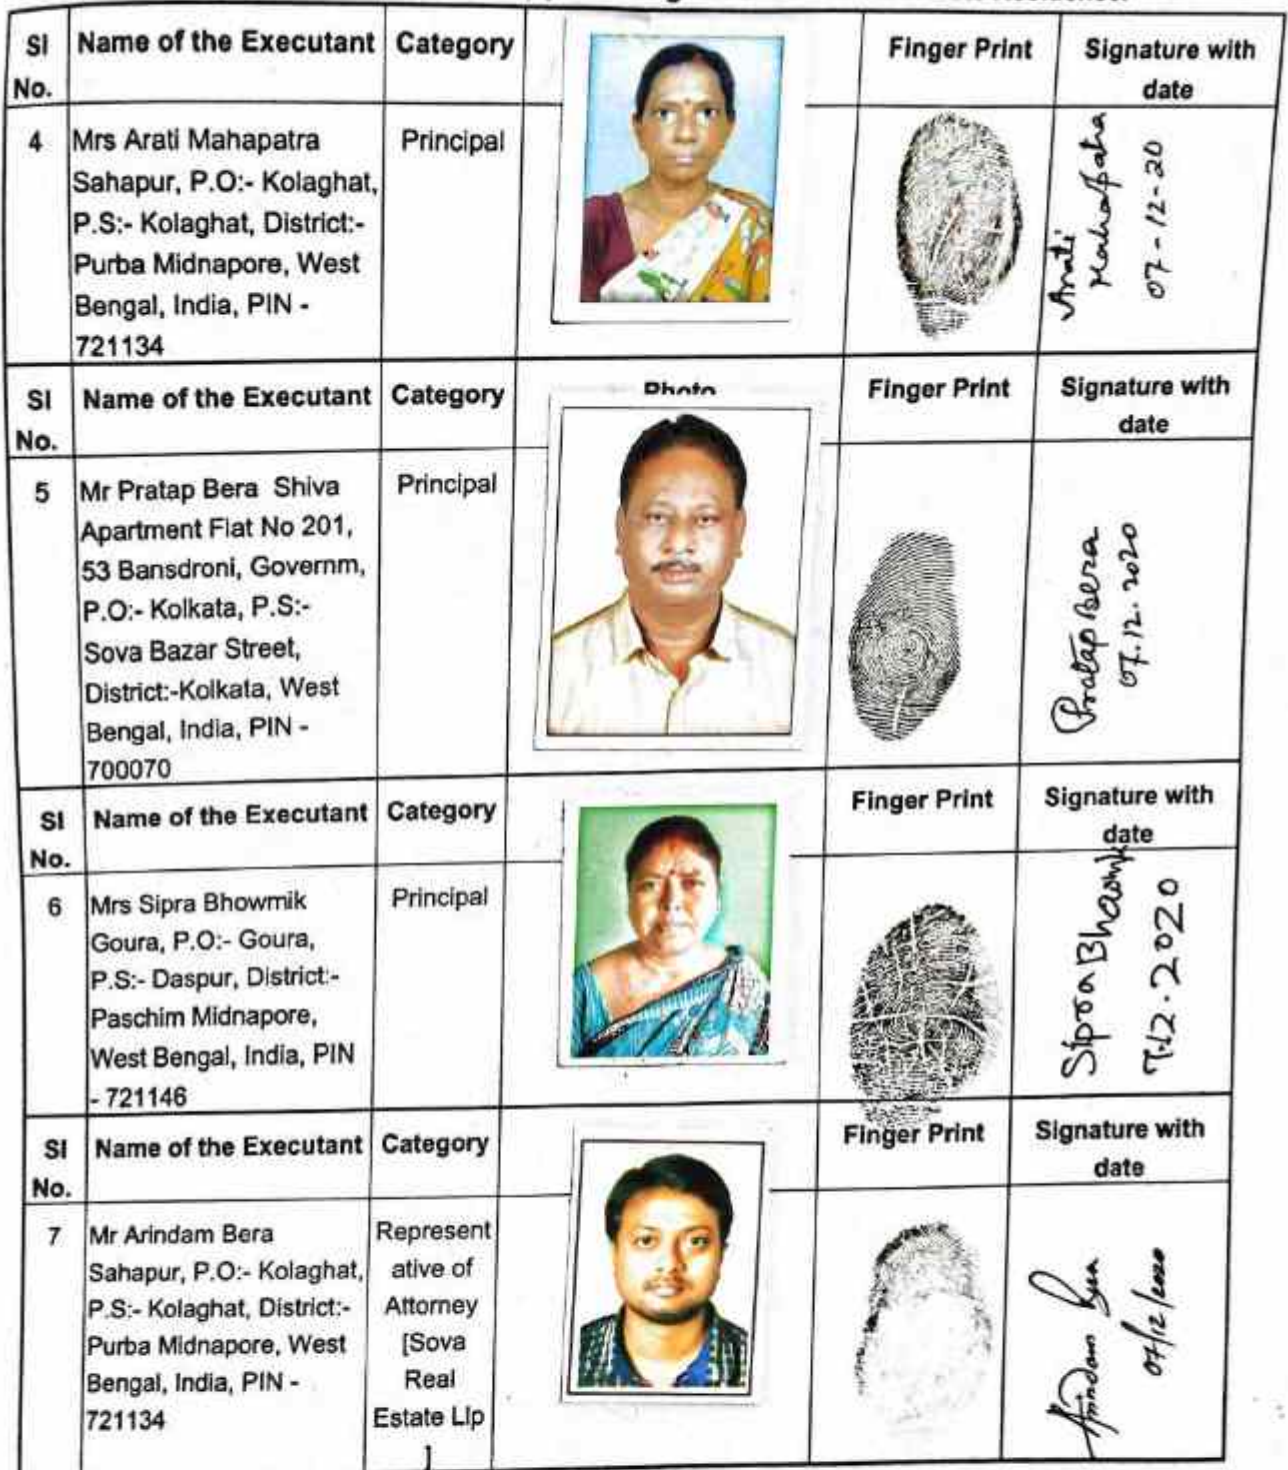 Residence.
Sl
No.
Name of the Executant
Category
Finger Print
Signature with
date
4
Mrs Arati Mahapatra
Sahapur, P.O:- Kolaghat,
P.S:- Kolaghat, District:-
Purba Midnapore, West
Bengal, India, PIN -
721134
Principal
Arati
Mahapatra
07-12-20
Sl
No.
Name of the Executant
Category
Photo
Finger Print
Signature with
date
5
Mr Pratap Bera Shiva
Apartment Flat No 201,
53 Bansdroni, Governm,
P.O:- Kolkata, P.S:-
Sova Bazar Street,
District:-Kolkata, West
Bengal, India, PIN -
700070
Principal
Pratap Bera
07.12.2020
Sl
No.
Name of the Executant
Category
Finger Print
Signature with
date
6
Mrs Sipra Bhowmik
Goura, P.O:- Goura,
P.S:- Daspur, District:-
Paschim Midnapore,
West Bengal, India, PIN
- 721146
Principal
Sipra Bhowmik
7.12.2020
Sl
No.
Name of the Executant
Category
Finger Print
Signature with
date
7
Mr Arindam Bera
Sahapur, P.O:- Kolaghat,
P.S:- Kolaghat, District:-
Purba Midnapore, West
Bengal, India, PIN -
721134
Represent
ative of
Attorney
[Sova
Real
Estate Llp
]
Arindam Bera
07/12/2020